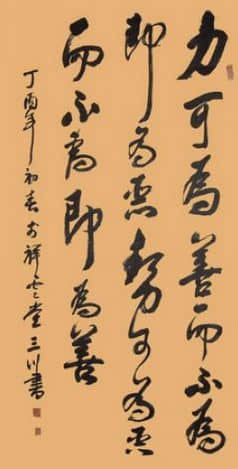 力可為善而不為
即為惡勢可為惡
而不為即為善
丁酉年初春於祥雲堂三川書